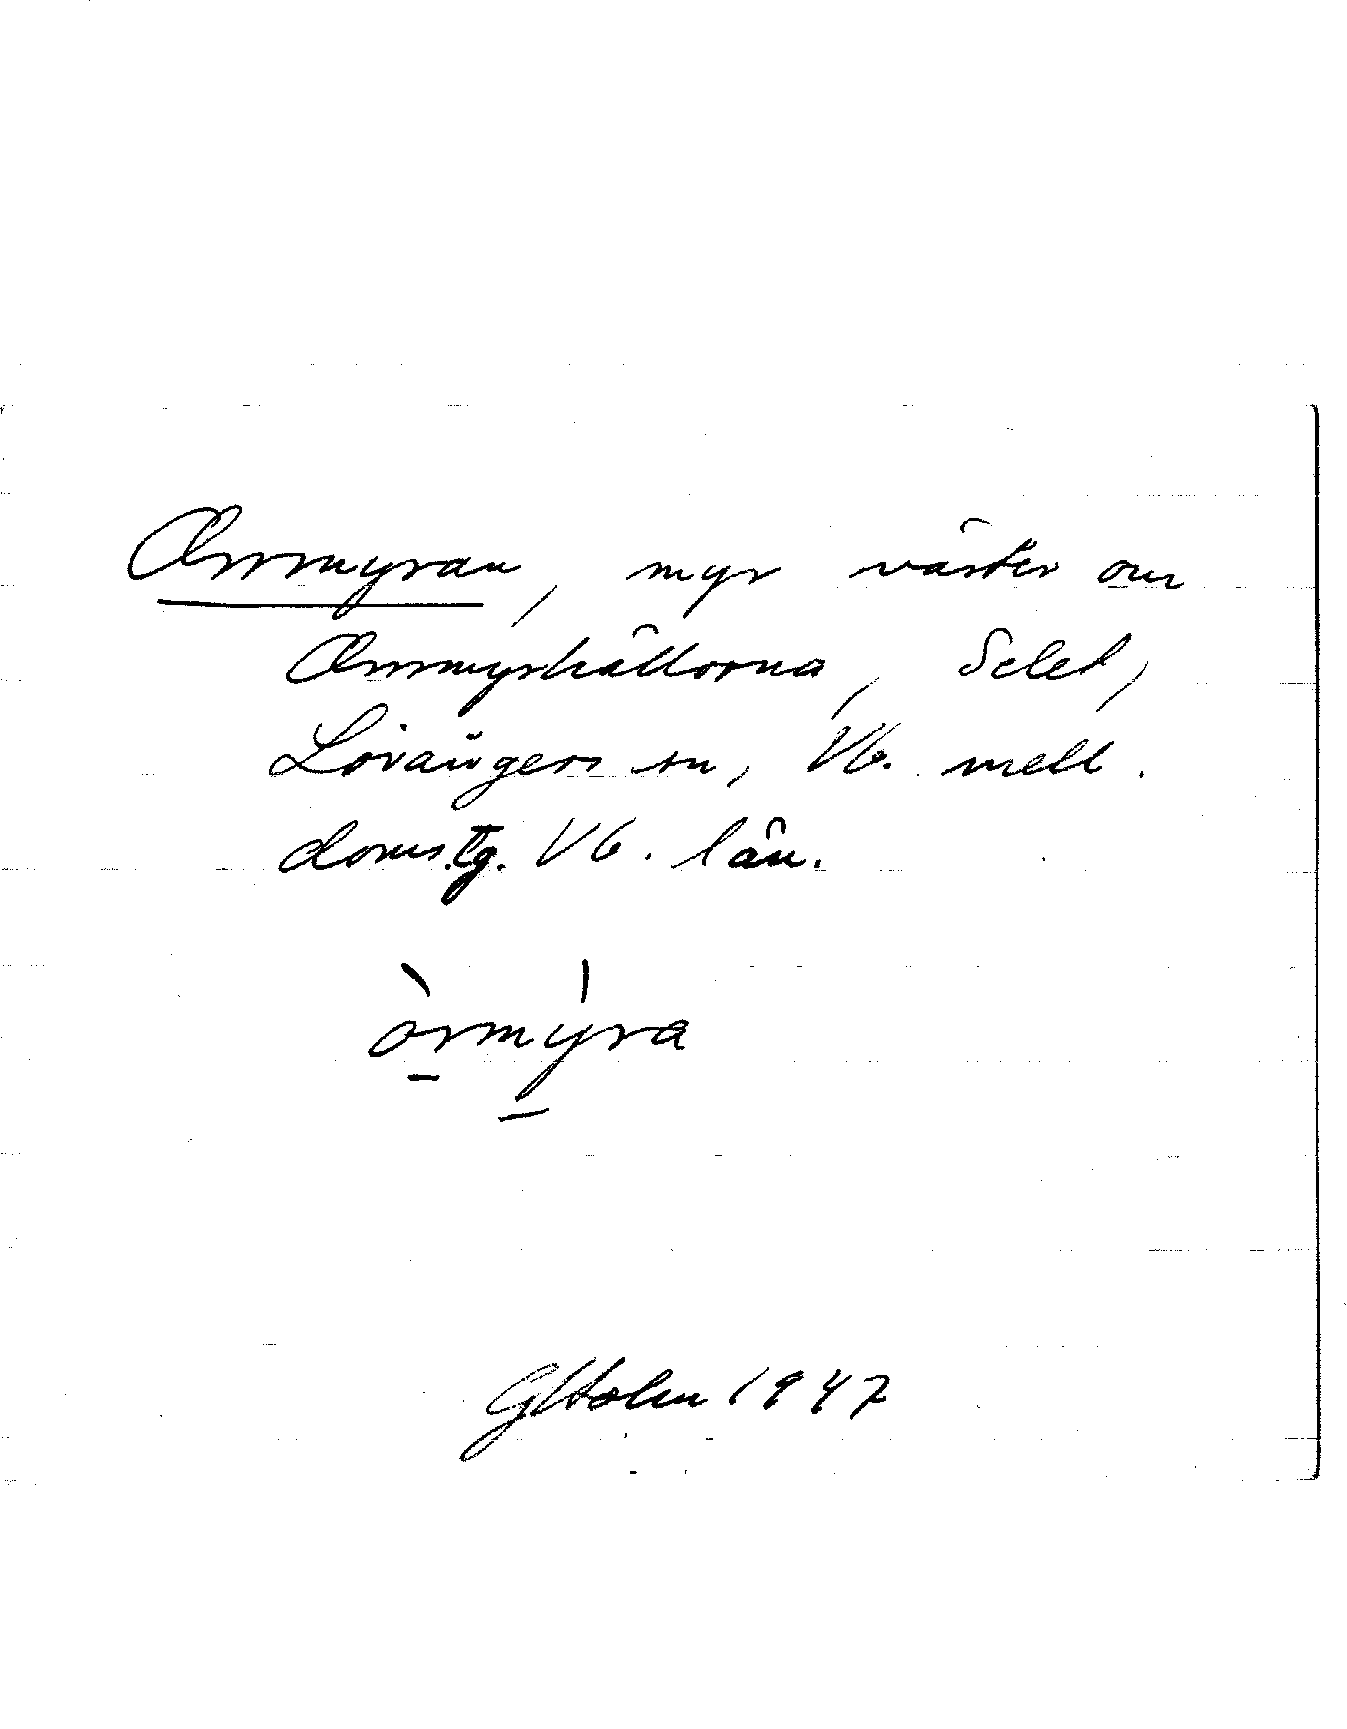 Ormmyran, myr väster om
Ormmyrhällorna, Selet,
Lövångers sn, Vb. mell.
doms.tg. Vb. län.
òrmýra
GHolm 1947